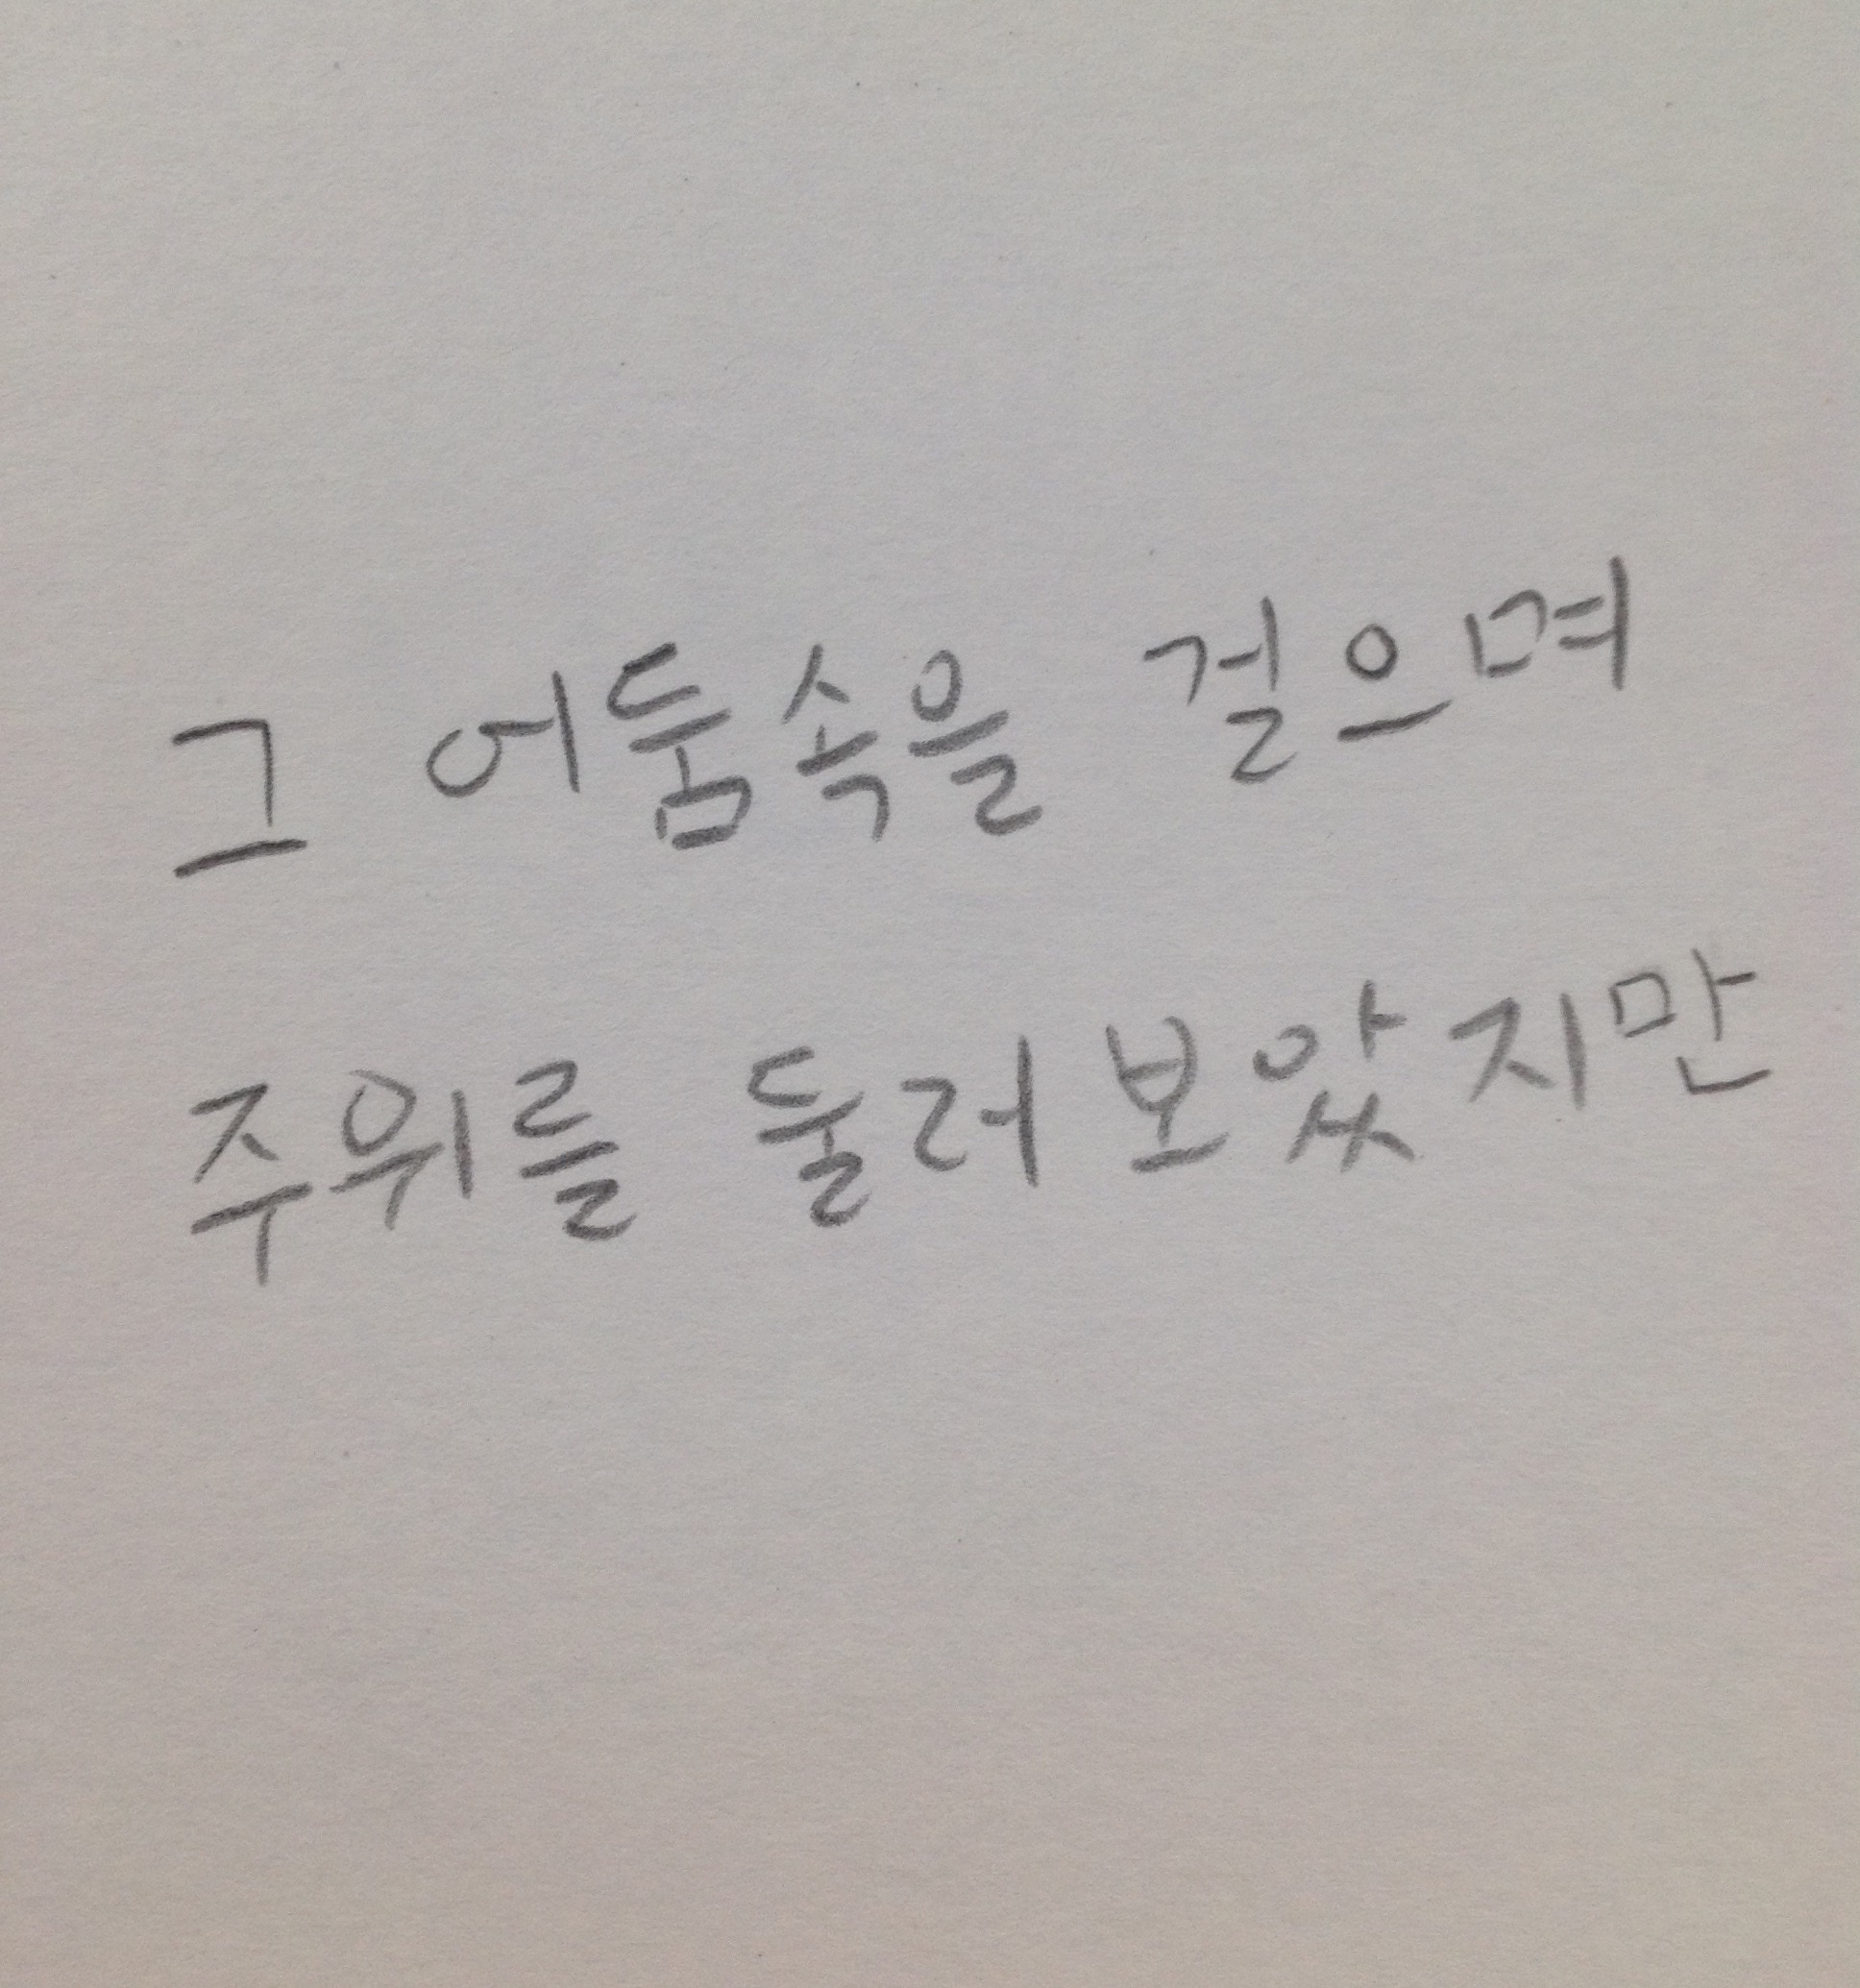 그 어둠속을 걸으며
주위를 둘러보았지만